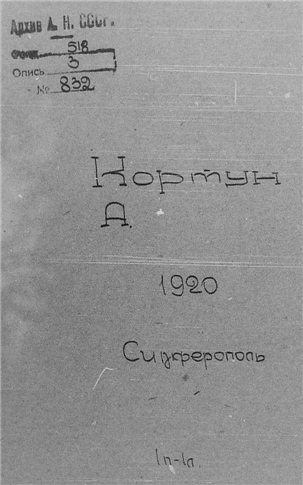 Архив А. Н. СССР.
Фонд 518
Опись 3
№ 832
Кортун
А.
1920
Симферополь
1п-1л.